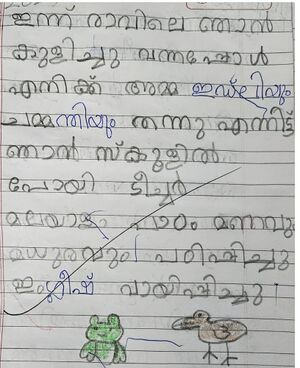 ഇന്ന് രാവിലെ ഞാൻ
കുളിച്ചു വന്നപ്പോൾ
എനിക്ക് അമ്മ ഇഡ്ഢലിയും
ചമ്മന്തിയും തന്നു എന്നിട്ട്
ഞാൻ സ്കൂളിൽ
പോയി ടീച്ചർ
മലയാള പാഠം മണവും
മധുരവും പഠിപ്പിച്ചു
ഇംഗ്ലീഷ് വായിപ്പിച്ചു